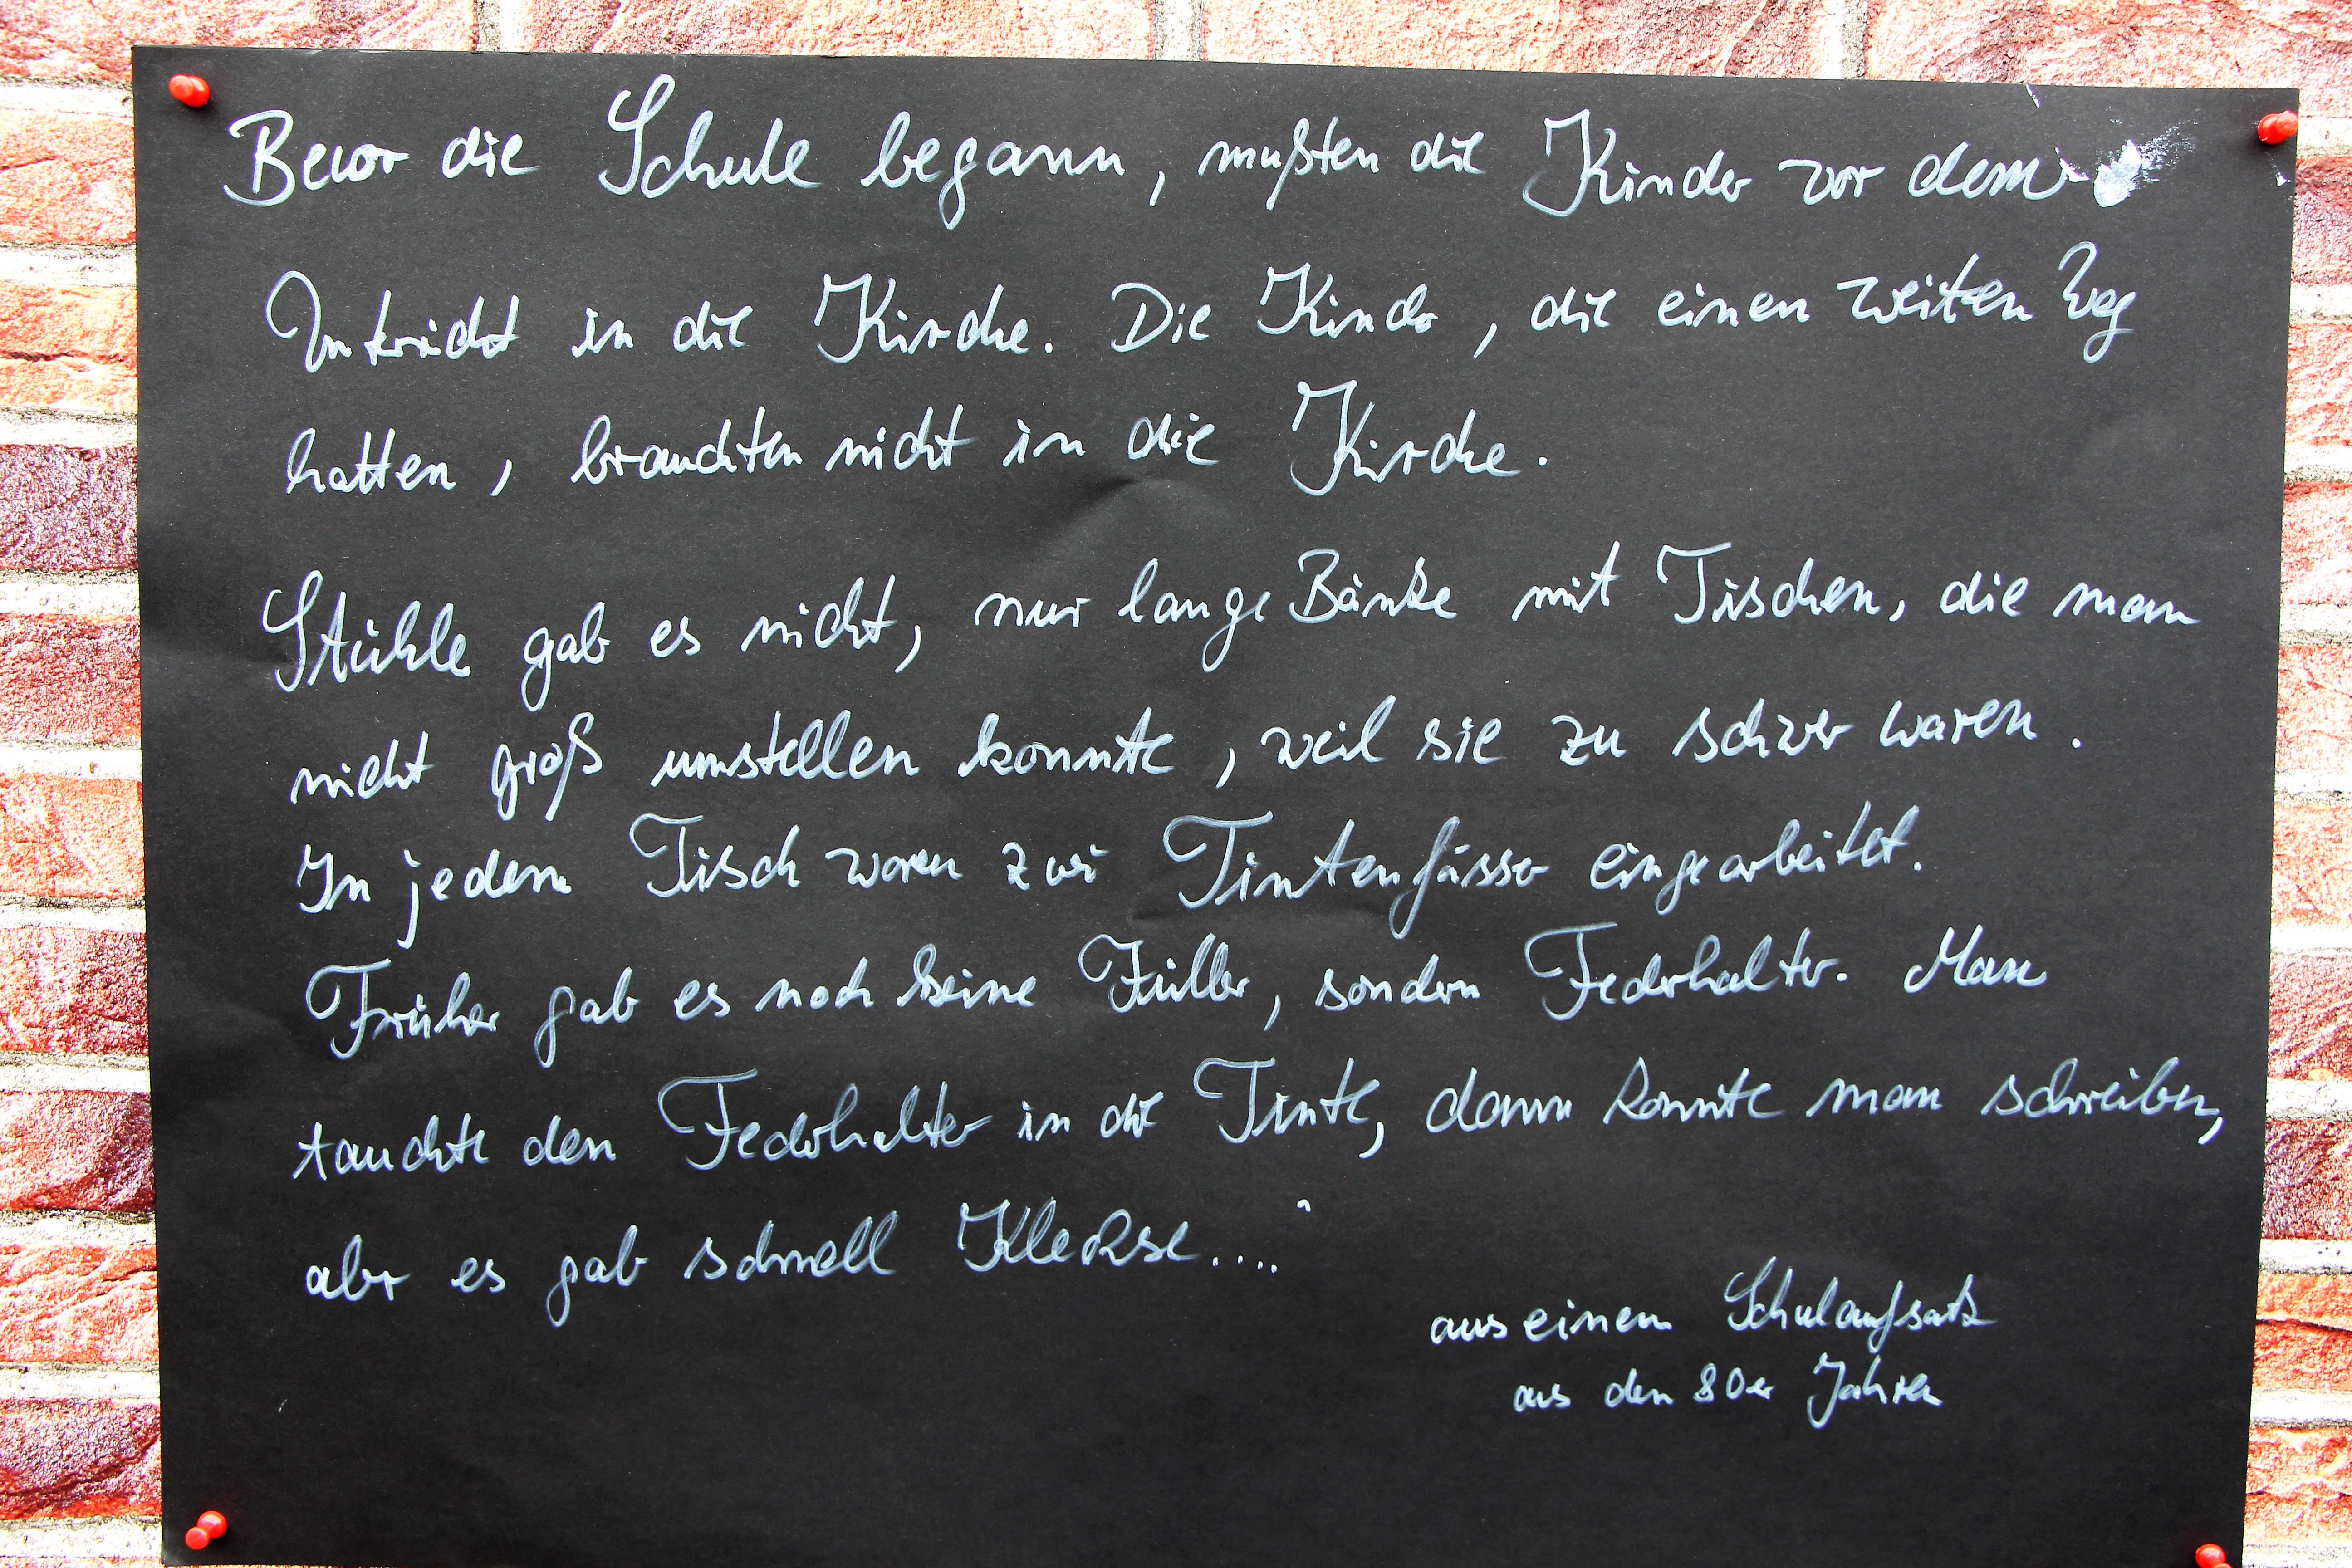 Bevor die Schule begann, mußten die Kinder vor dem
Unterricht in die Kirche. Die Kinder, die einen weiten Weg
hatten, brauchten nicht in die Kirche.
Stühle gab es nicht, nur lange Bänke mit Tischen, die man
nicht groß umstellen konnte, weil sie zu schwer waren.
In jedem Tisch waren zwei Tintenfässer eingearbeitet.
Früher gab es noch keine Füller, sondern Federhalter. Man
tauchte den Federhalter in die Tinte, dann konnte man schreiben,
aber es gab schnell Kleckse...."
aus einem Schulaufsatz
aus den 80er Jahren